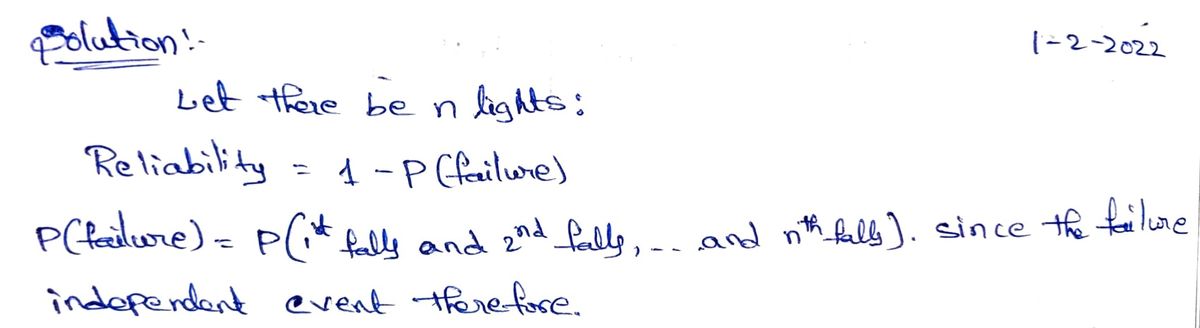 Solution:- 1-2-2022
Let there be n lights:
Reliability = 1 - P(failure)
P(failure) = P(1st falls and 2nd falls, ... and nth falls). since the failure
independent event therefore.